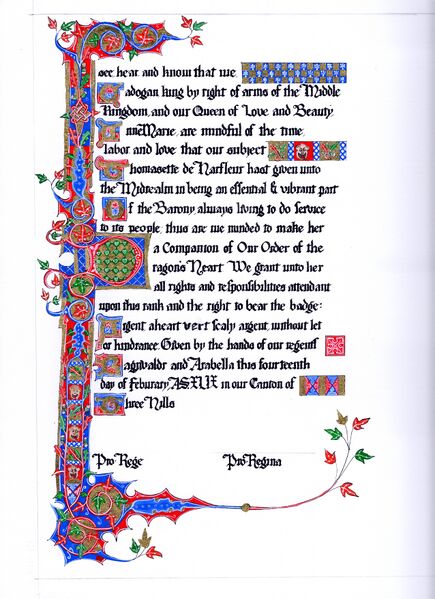 see hear and know that we,
Cadogan king by right of arms of the Middle
Kingdom, and our Queen of Love and Beauty,
AnneMarie, are mindful of the time,
labor and love that our subject
Thomasette de Harfleur hast given unto
the Midrealm in being an essential & vibrant part
Of the Barony, always living to do service
to its people, thus are we minded to make her
a Companion of Our Order of the
Dragon's Heart. We grant unto her
all rights and responsibilities attendant
upon this rank and the right to bear the badge:
Argent a heart vert scaly argent, without let
or hindrance. Given by the hands of our regents
Ragnvaldr and Arabella this fourteenth
day of Feburary, AS XLIX in our Canton of
Three Hills
Pro Rege
Pro Regina